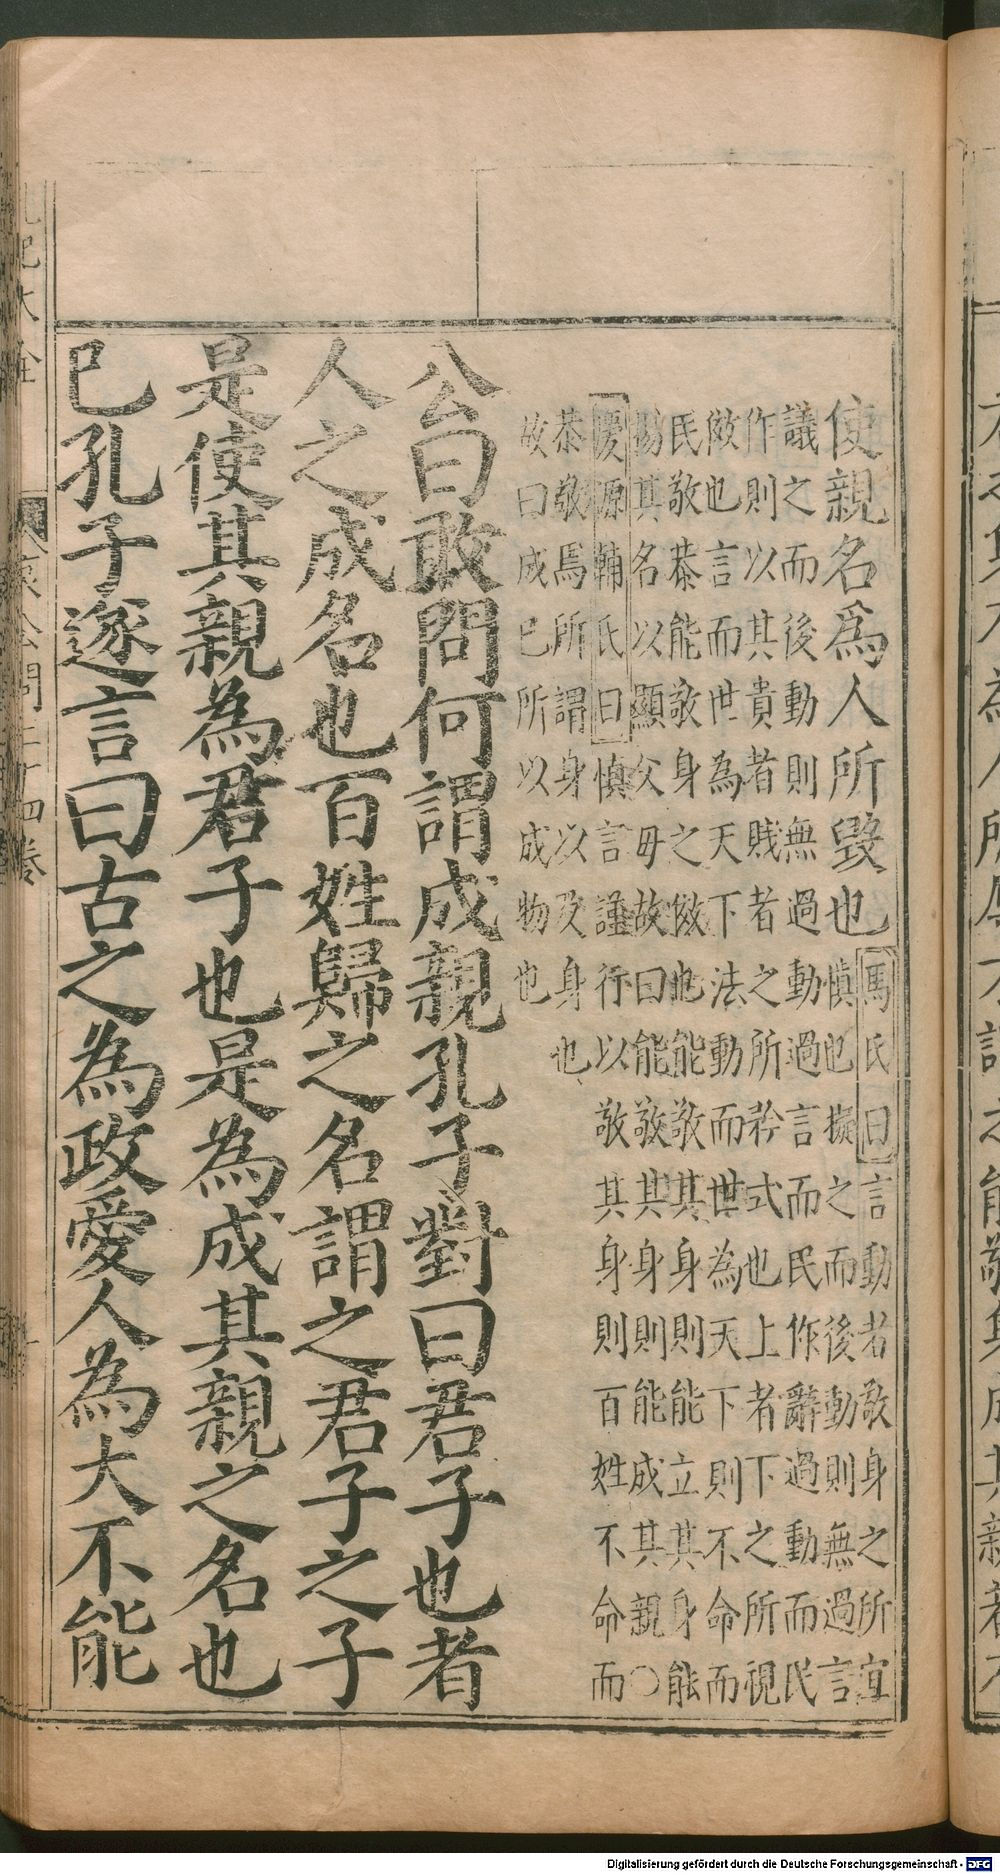 使親名爲人所毁也
馬氏曰言動者敬身之所宜
慎也擬之而後動則無過言
議之而後動則無過動過言而民作辭過動而民
作則以其貴者賤者之所矜式也上者下之所視
俲也言而世為天下法動而世為天下則不命而
民敬恭能敬身之俲也能敬其身則能立其身能
揚其名以顯父毋故曰能敬其身則能成其親○
慶源輔氏曰慎言謹行以敬其身則百姓不命而
恭敬焉所謂身以及身也
故曰成已所以成物也
公曰敢問何謂成親孔子對曰君子也者
人之成名也百姓歸之名謂之君子之子
是使其親為君子也是為成其親之名也
已孔子遂言曰古之為政愛人為大不能
記大全
哀公問二十四卷
Digitalisierung gefördert durch die Deutsche Forschungsgemeinschaft - DFG